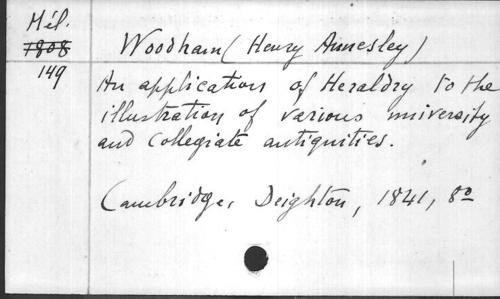 Mél.
1808
149
Woodham (Henry Annesley)
An application of Heraldry to the
illustration of various university
and collegiate antiquities.
Cambridge, Deighton, 1841, 8º